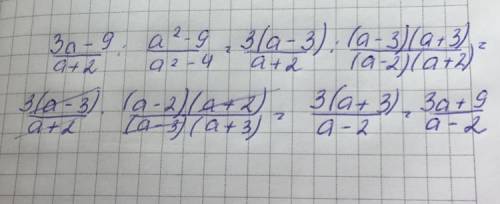 (3a-9)/(a+2) : (a²-9)/(a²-4) = 3(a-3)/(a+2) : (a-3)(a+3)/((a-2)(a+2)) =
3(a-3)/(a+2) · (a-2)(a+2)/((a-3)(a+3)) = 3(a+3)/(a-2) = (3a+9)/(a-2)